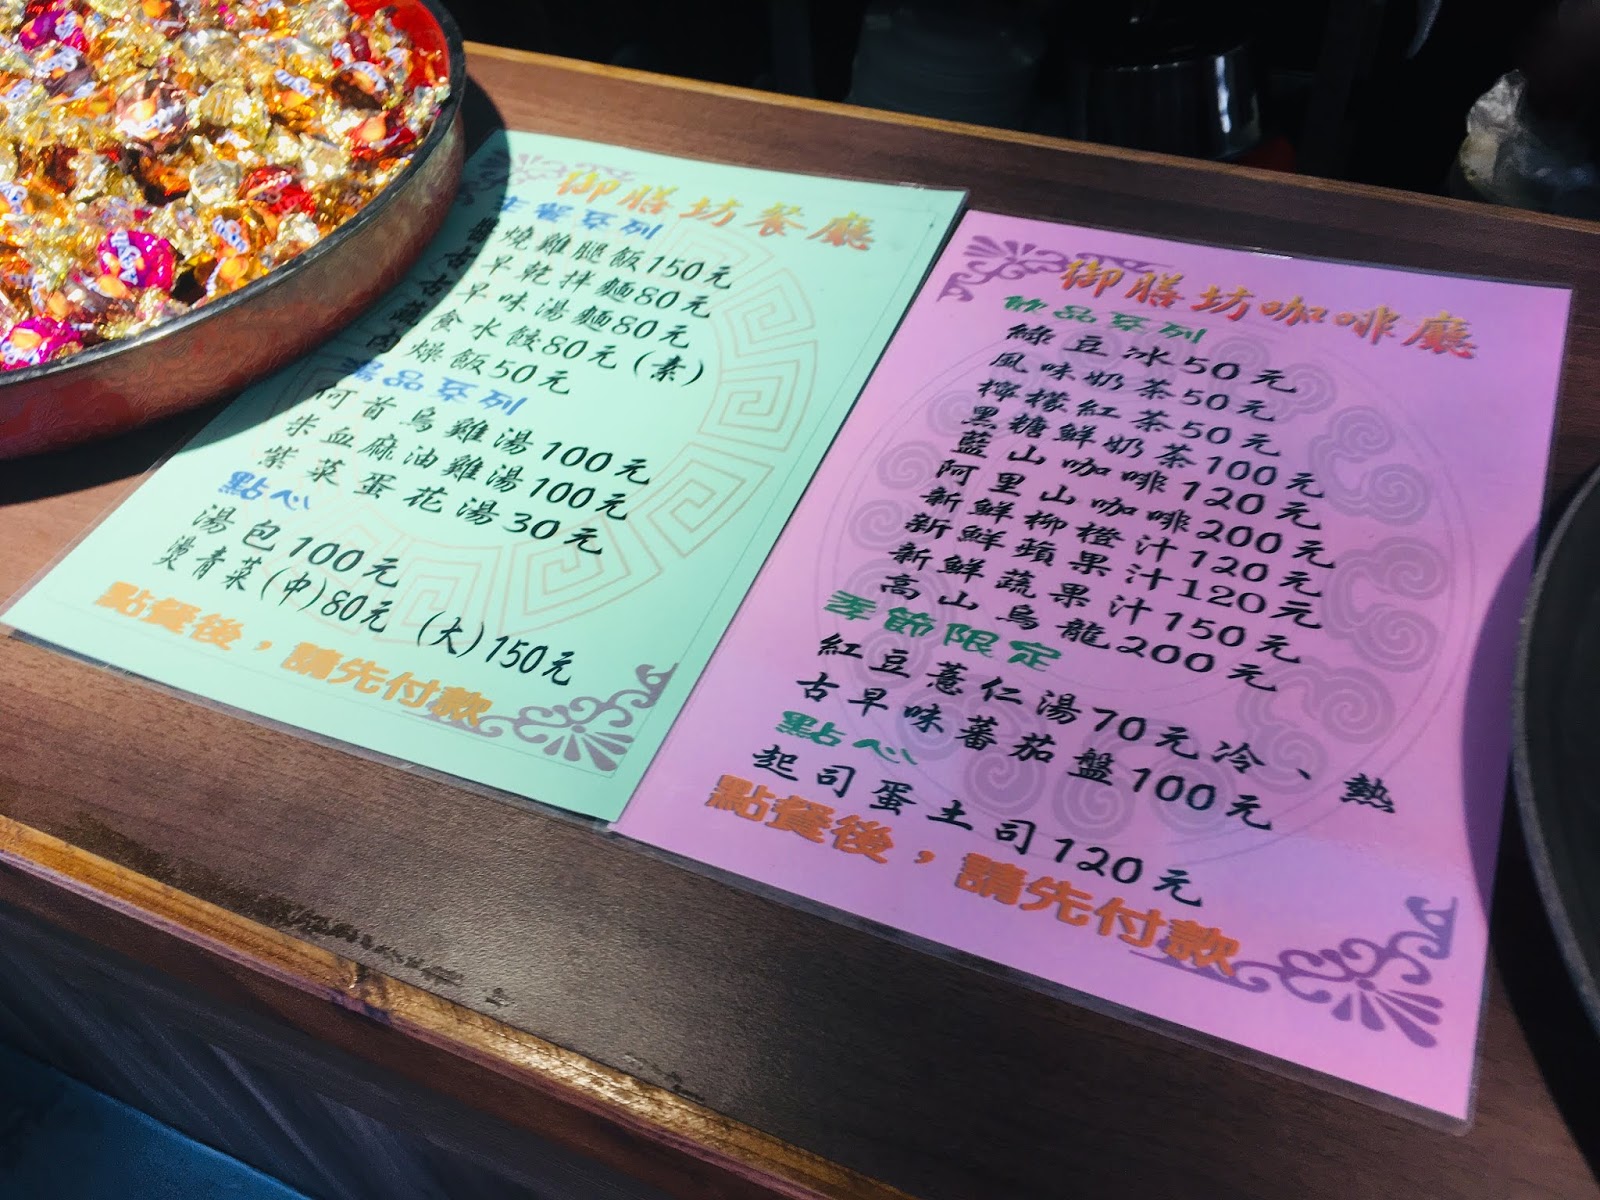 御膳坊餐廳
主餐系列
燒雞腿飯150元
古早乾拌麵80元
古早味湯麵80元
蔬食水餃80元(素)
肉燥飯50元
湯品系列
何首烏雞湯100元
朱血麻油雞湯100元
紫菜蛋花湯30元
點心
湯包100元
燙青菜(中)80元 (大)150元
點餐後，請先付款
御膳坊咖啡廳
飲品系列
綠豆冰50元
風味奶茶50元
檸檬紅茶50元
黑糖鮮奶茶100元
藍山咖啡120元
阿里山咖啡200元
新鮮柳橙汁120元
新鮮蘋果汁120元
新鮮蔬果汁150元
高山烏龍200元
季節限定
紅豆薏仁湯70元冷、熱
古早味蕃茄盤100元
點心
起司蛋土司120元
點餐後，請先付款